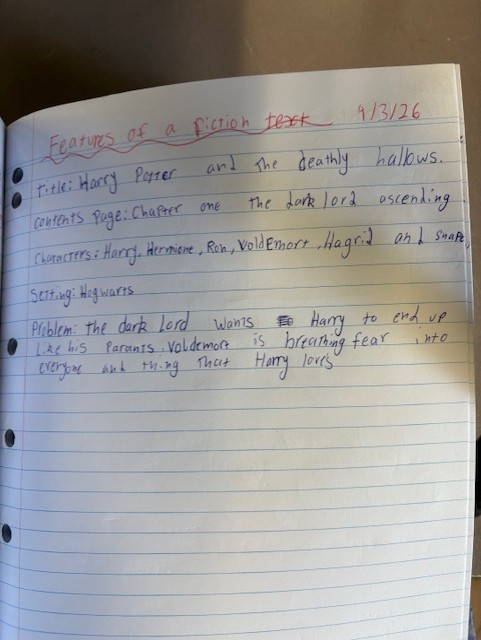 Features of a fiction text 9/3/26
Title: Harry Potter and the deathly hallows.
contents page: Chapter one the dark lord ascending
Characters: Harry, Hermione, Ron, VoldEmort, Hagrid and snape,
Setting: Hogwarts
Problem: the dark Lord wants to Harry to end up
Like his Parants. Voldemort is breathing fear into
everyone and thing that Harry loves